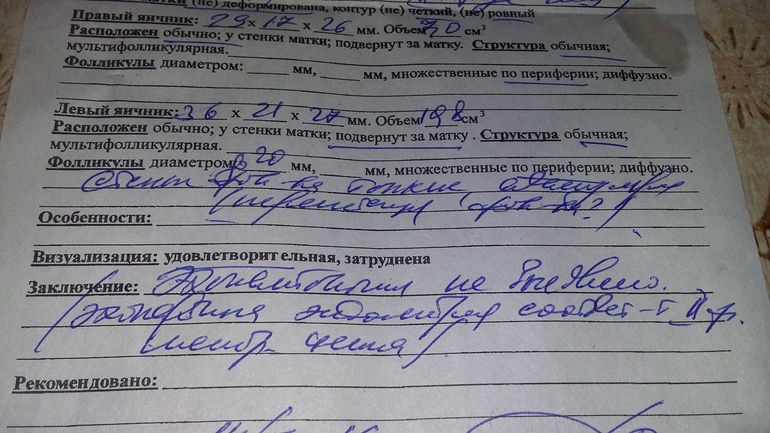 матки (не) деформирована, контур (не) четкий, (не) ровный
Правый яичник: 29 х 17 х 26 мм. Объем 7,0 см³
Расположен обычно; у стенки матки; подвернут за матку. Структура обычная;
мультифолликулярная.
Фолликулы диаметром: ____ мм, ____ мм, множественные по периферии; диффузно.
Левый яичник: 36 х 21 х 27 мм. Объем см³
Расположен обычно; у стенки матки; подвернут за матку . Структура обычная;
мультифолликулярная.
Фолликулы диаметром 20 мм, ____ мм, множественные по периферии; диффузно.
стенки тонкие,
Особенности:
Визуализация: удовлетворительная, затруднена
Заключение: не выявлено.
(эхокартина эндометрия соответ-т II ф.
менстр. цикла)
Рекомендовано: